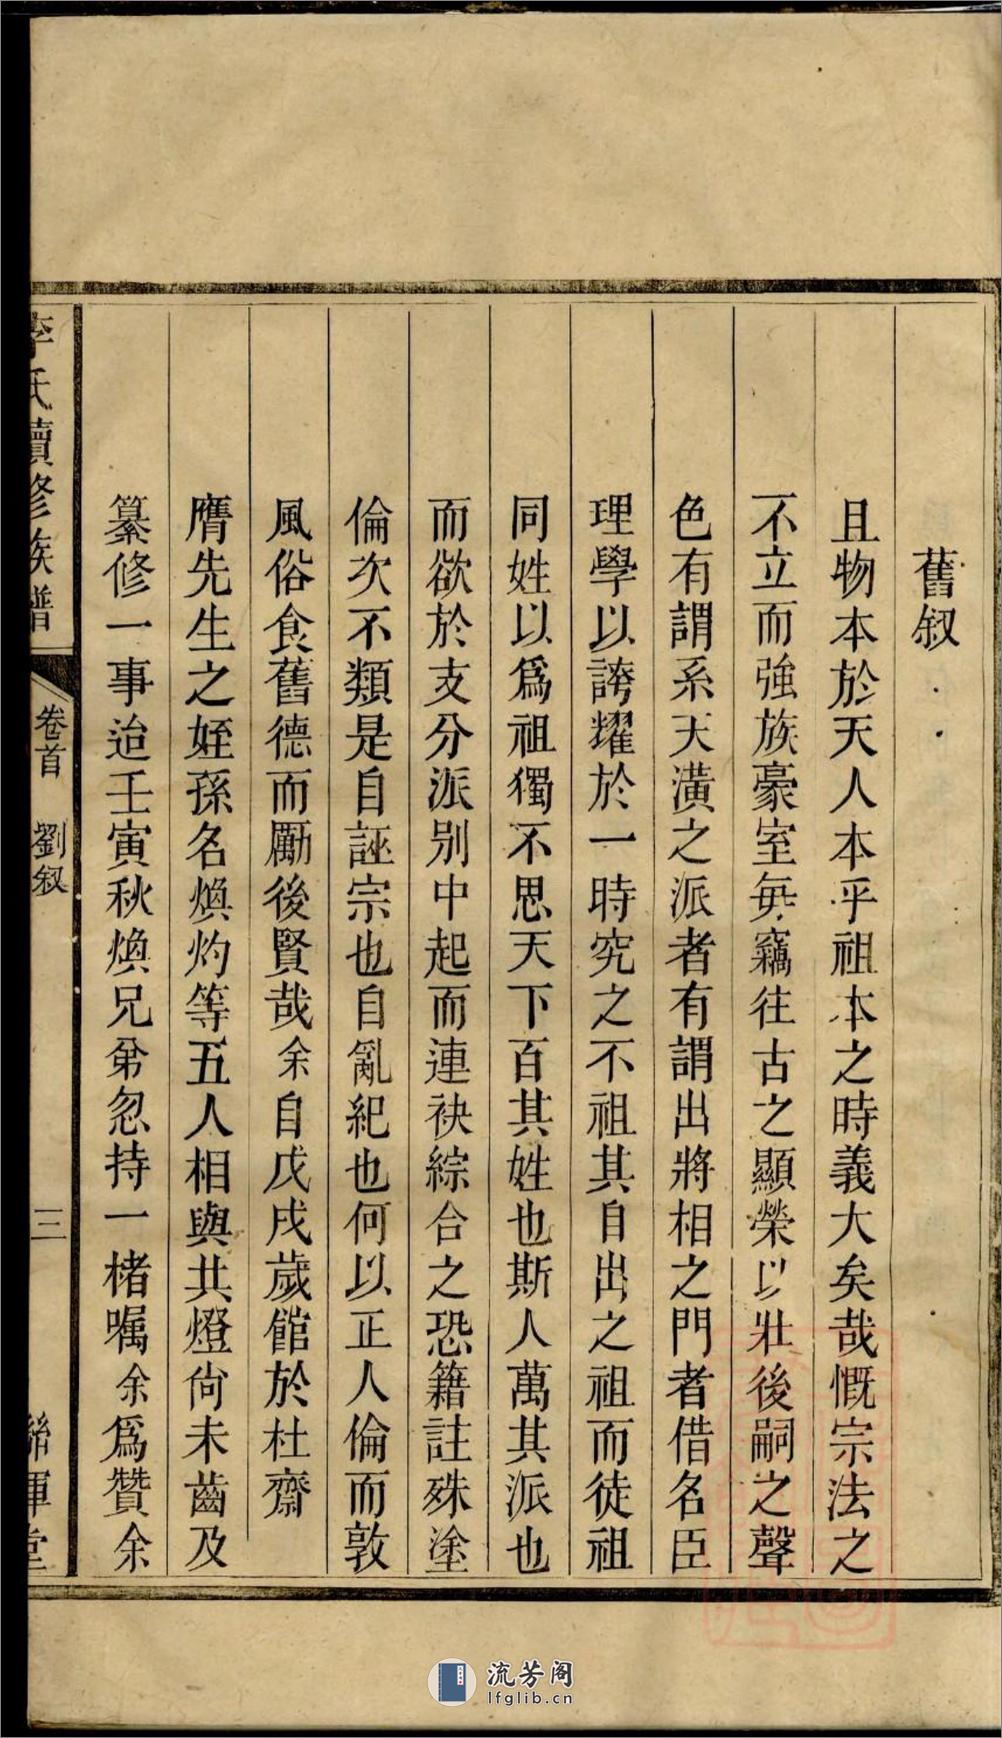 舊叙
且物本於天人本乎祖本之時義大矣哉慨宗法之
不立而強族豪室每竊往古之顯榮以壯後嗣之聲
色有謂系天潢之派者有謂出將相之門者借名臣
理學以誇耀於一時究之不祖其自出之祖而徒祖
同姓以爲祖獨不思天下百其姓也斯人萬其派也
而欲於支分派别中起而連袂綜合之恐籍註殊塗
倫次不類是自誣宗也自亂紀也何以正人倫而敦
風俗食舊德而勵後賢哉余自戊戌歲館於杜齋
膺先生之姪孫名煥灼等五人相與共燈尙未齒及
纂修一事迨壬寅秋煥兄弟忽持一楮嘱余爲贊余
李氏續修族譜
卷首 劉叙
三
聯輝堂
流芳阁
lfglib.cn